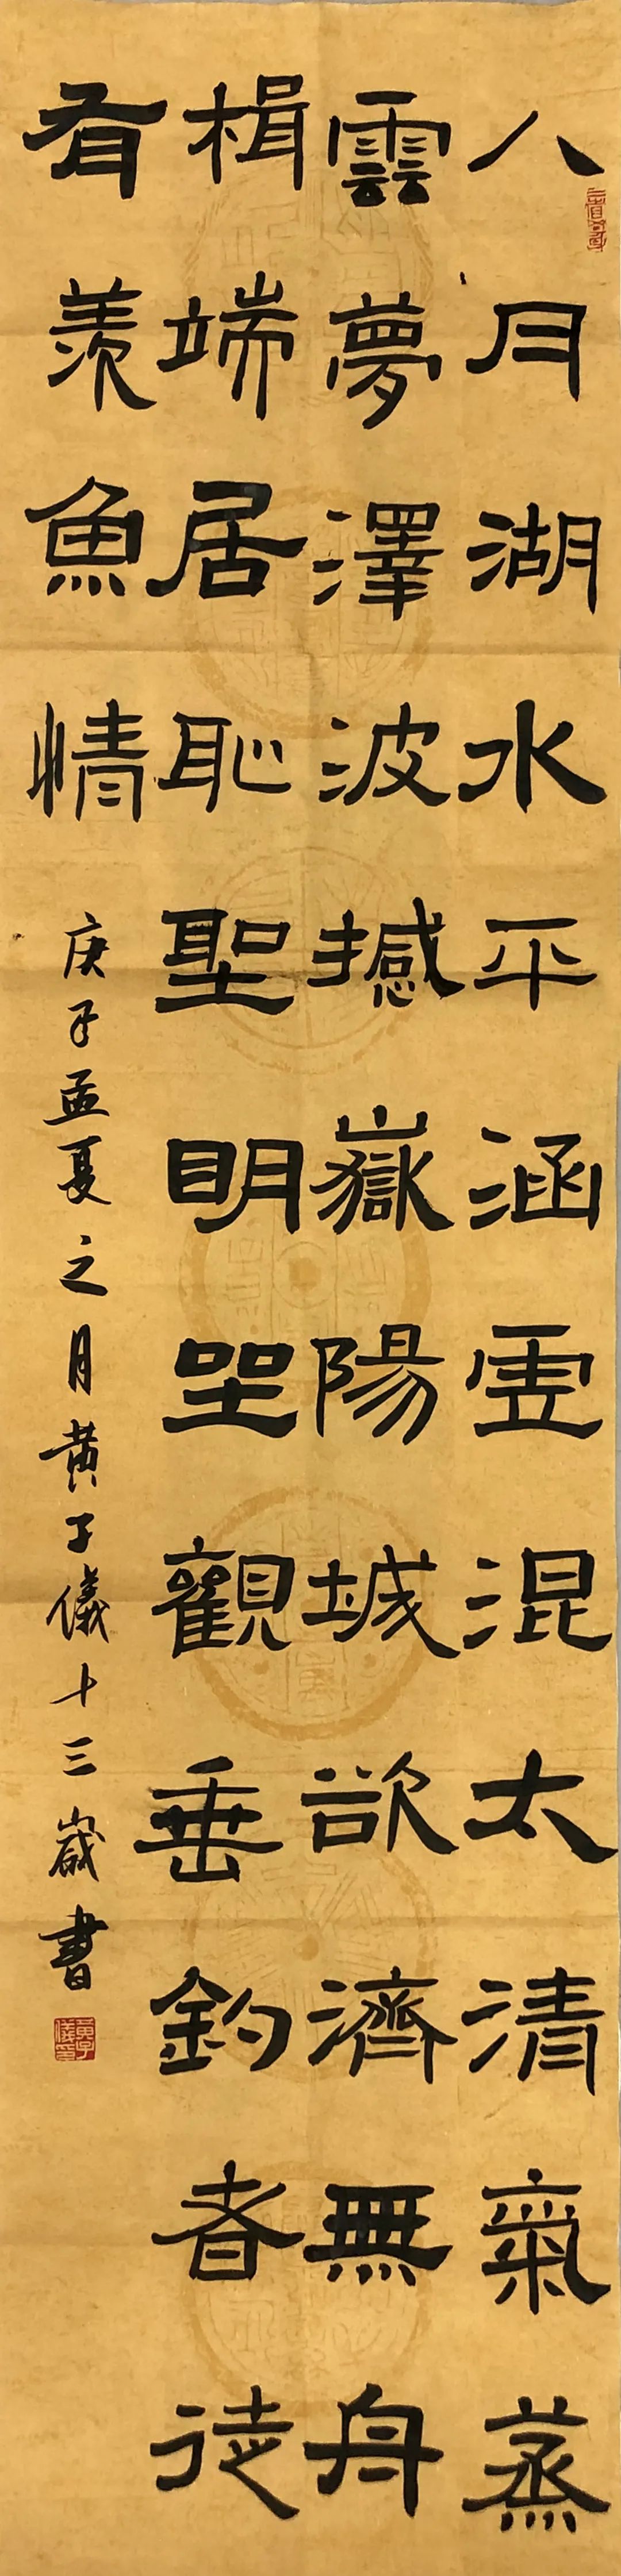 八月湖水平涵虛混太清氣蒸
雲夢澤波撼嶽陽城欲濟無舟
楫端居恥聖明坐觀垂釣者徒
有羨魚情
庚子孟夏之月黃子儀十三歲書
黃子儀印